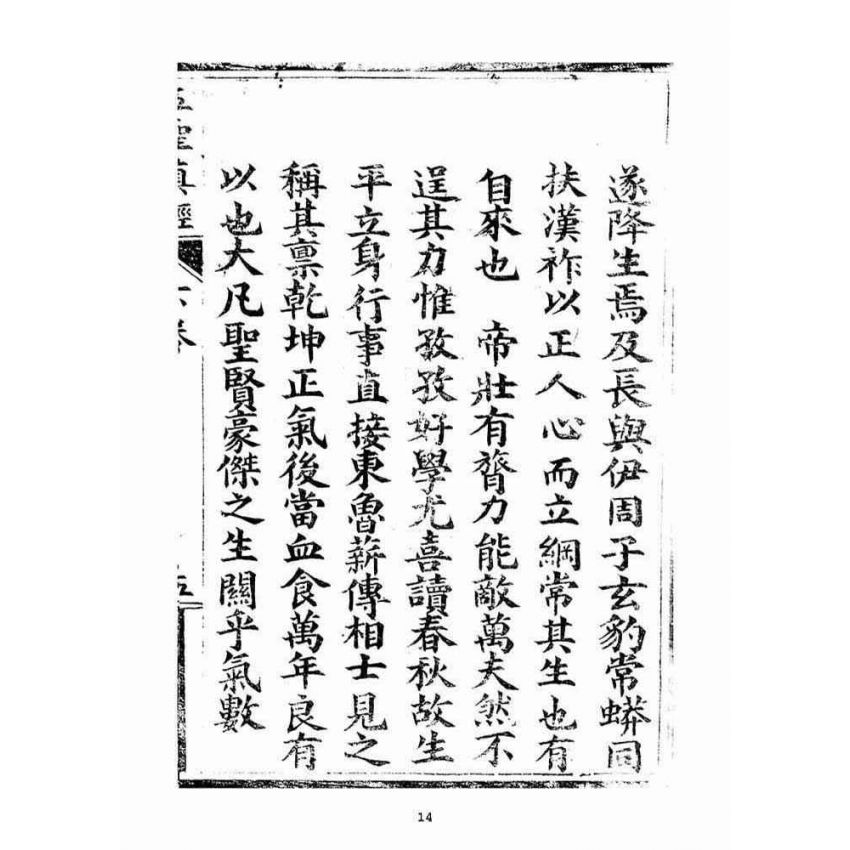 遂降生焉及長與伊周子玄豹常蟒同
扶漢祚以正人心而立綱常其生也有
自來也　帝壯有膂力能敵萬夫然不
逞其力惟孜孜好學尤喜讀春秋故生
平立身行事直接東魯薪傳相士見之
稱其禀乾坤正氣後當血食萬年良有
以也大凡聖賢豪傑之生關乎氣數
五聖真經
下卷
五
14